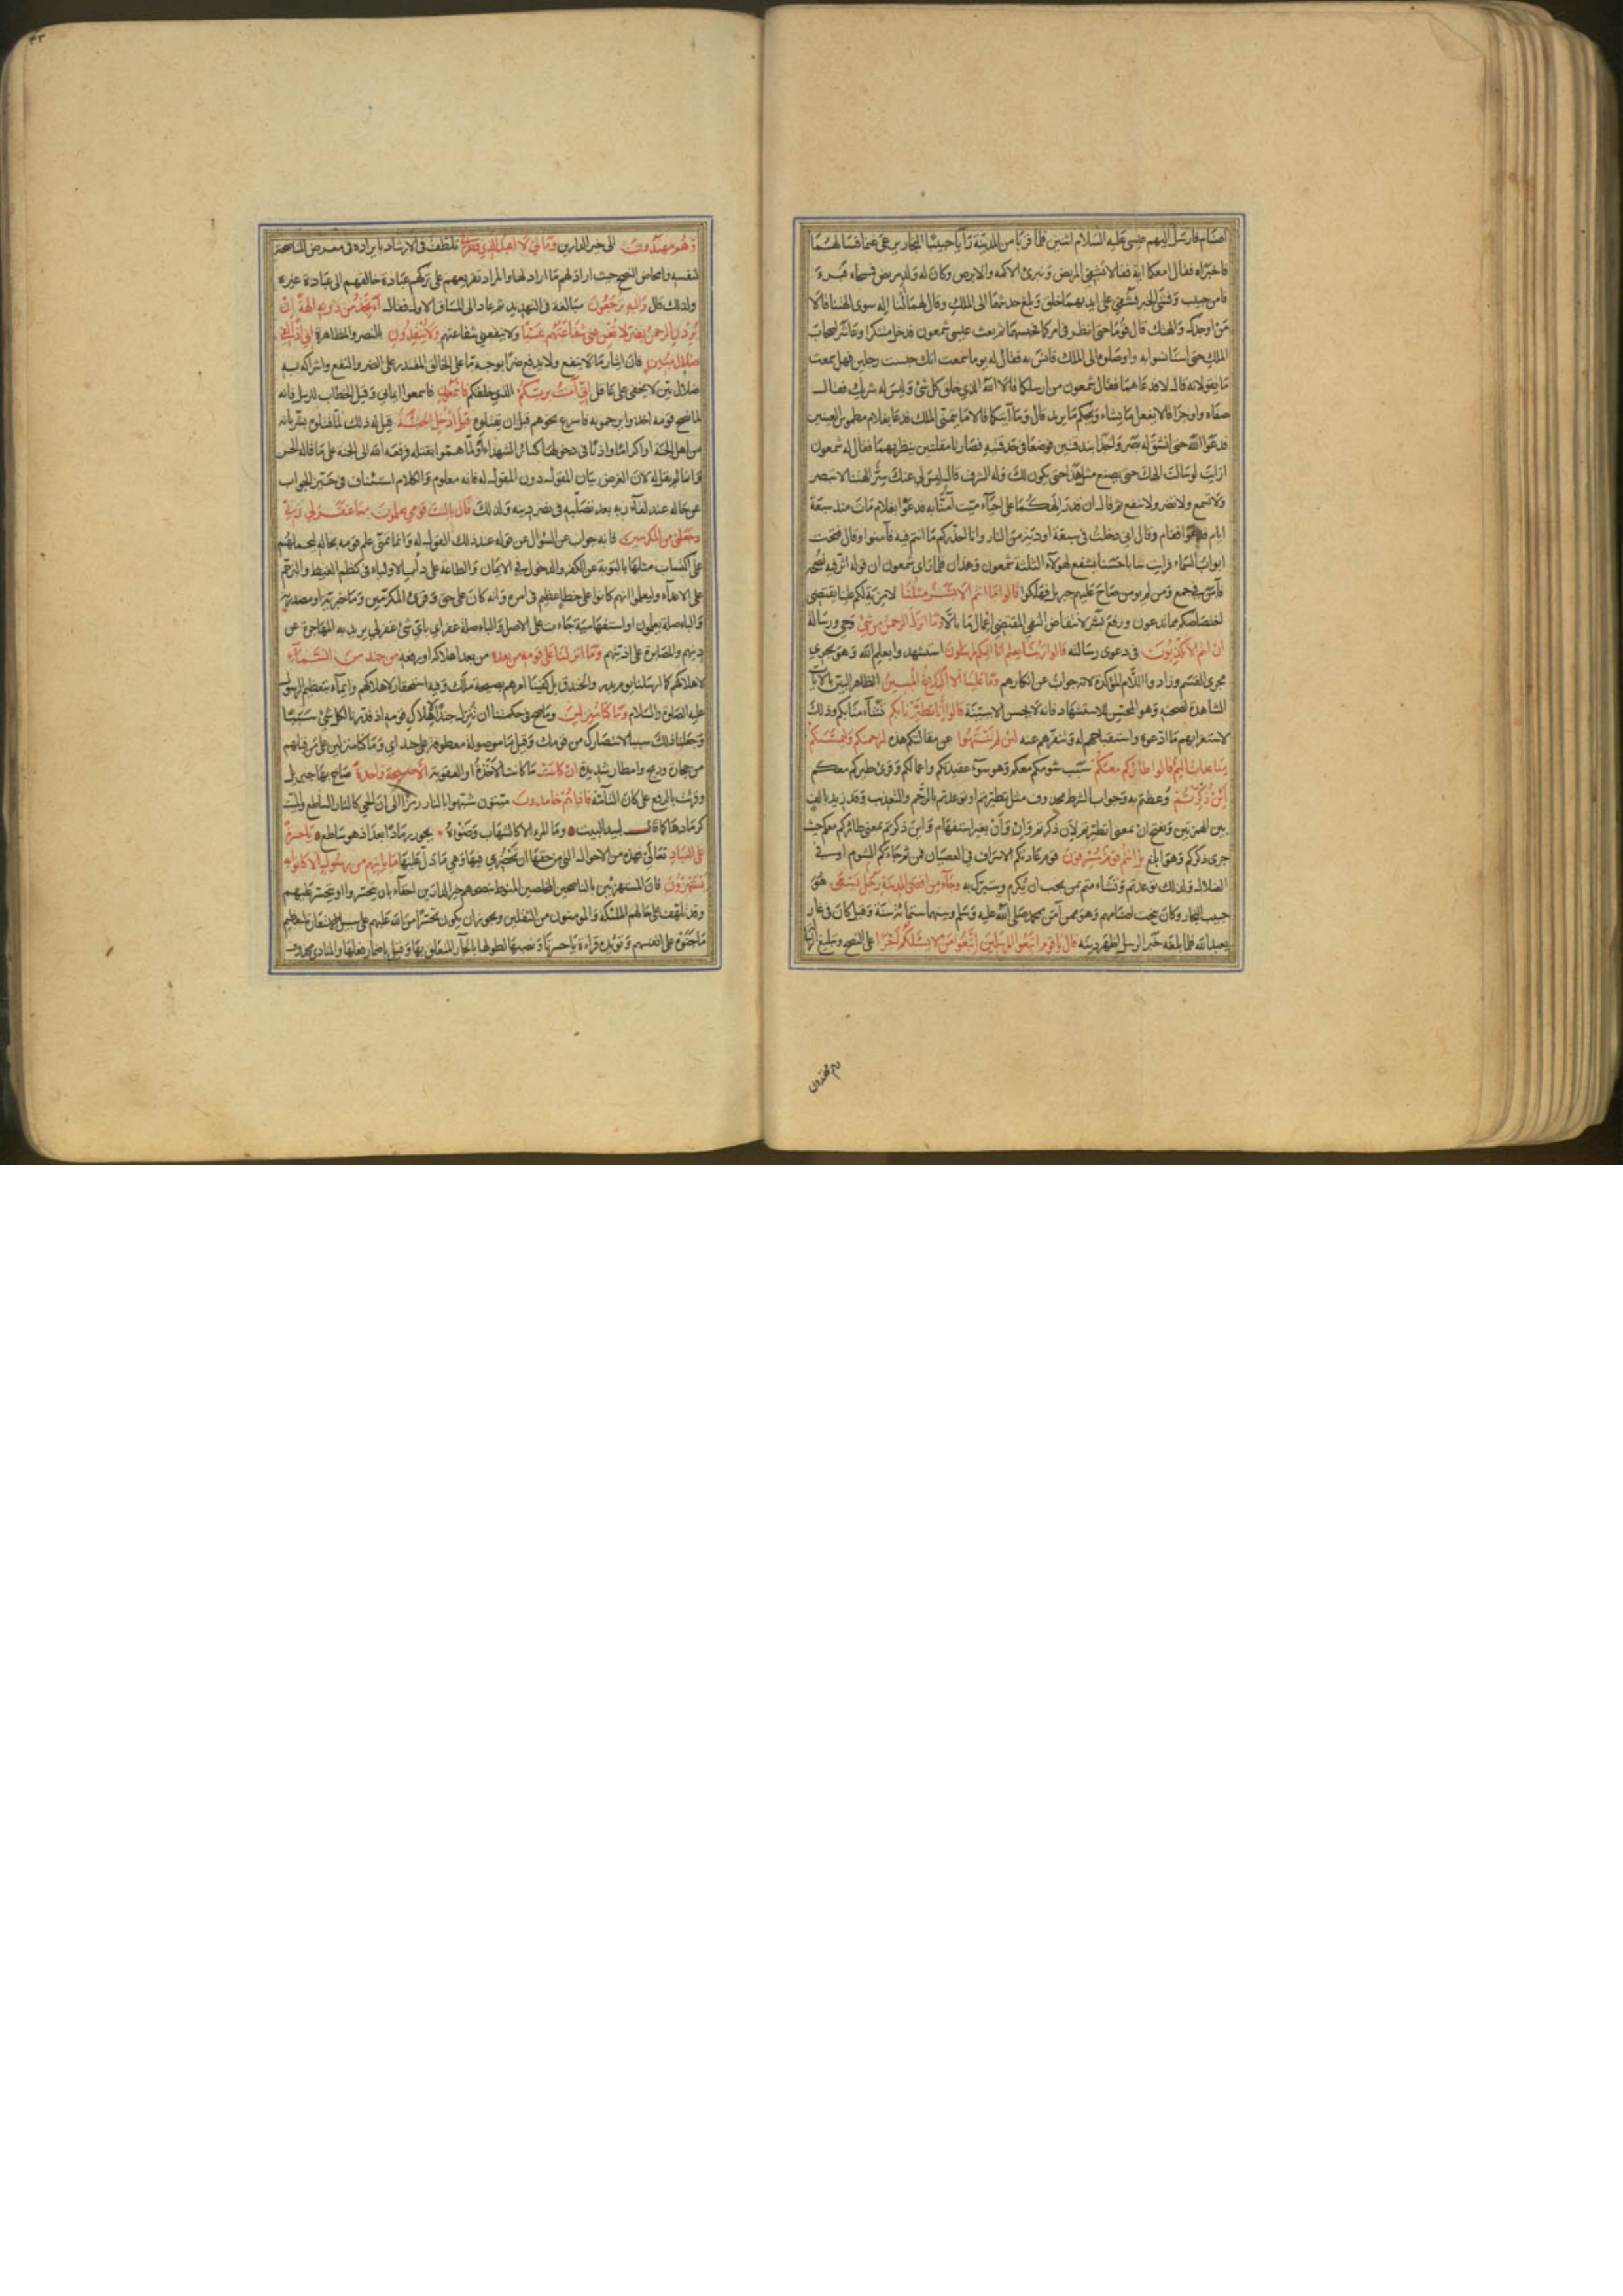 اصنام فارسل اليهم عيسى عليه السلام اثنين فلما قربا من المدينة رأيا حبيبا النجار يرعى غنما فسألهما
فاخبراه فقال امعكما اية فقالا نشفى المريض ونبرئ الاكمه والابرص وكان له ولد مريض فمسحاه فبرء
فامن حبيب وفشى الخبر فشفى على ايديهما خلق وبلغ حديثهما الى الملك وقال لهما ألنا اله سوى الهتنا قالا
من اوجدك والهتك قال قوما حتى انظر فى امركما فحبسهما ثم بعث عيسى شمعون فدخل متنكرا وعاشر اصحاب
الملك حتى استأنسوا به واوصلوه الى الملك فانس به فقال له يوما سمعت انك حبست رجلين فهل سمعت
ما يقولانه قال لا فدعاهما فقال شمعون من ارسلكما قالا الله الذى خلق كل شئ وليس له شريك فقال
صفاه واوجزا قالا يفعل ما يشاء ويحكم ما يريد قال وما آيتكما قالا ما يتمنى الملك فدعا بغلام مطموس العينين
فدعوا الله حتى انشق له بصر واخذا بندقتين فوضعا فى حدقتيه فصارتا مقلتين ينظر بهما فقال له شمعون
ارايت لو سالت الهك حتى يصنع مثل هذا حتى يكون لك وله الشرف قال ليس لى عنك سر الهتنا لا تبصر
ولا تسمع ولا تضر ولا تنفع ثم قال ان قدر الهكما على احياء ميت آمنا به فدعوا بغلام مات منذ سبعة
ايام فقام وقال انى دخلت فى سبعة اودية من النار وانا احذركم ما انتم فيه فآمنوا وقال فتحت
ابواب السماء فرايت شابا حسنا يشفع لهؤلاء الثلثة شمعون وهذان فلما راى شمعون ان قوله اثر فيه نصحه
فآمن فى جمع ومن لم يومن صاح عليهم جبريل فهلكوا قالوا ما انتم الا بشر مثلنا لا مزية لكم علينا يقتضى
اختصاصكم بما تدعون ورفع بشر لانتقاض النفى المقتضى اعمال ما بالا وما انزل الرحمن من شئ وحى ورسالة
ان انتم الا تكذبون فى دعوى رسالته قالوا ربنا يعلم انا اليكم لمرسلون استشهدوا بعلم الله وهو يجرى
مجرى القسم وزادوا اللام المؤكدة لانه جواب عن انكارهم وما علينا الا البلاغ المبين الظاهر البين بالآيات
الشاهدة لصحته وهو المحسن للاستشهاد فانه لا يحسن الا ببينة قالوا انا تطيرنا بكم تشأمنا بكم وذلك
لاستغرابهم ما ادعوه واستقباحهم له وتنفرهم عنه لئن لم تنتهوا عن مقالتكم هذه لنرجمنكم وليمسنكم
منا عذاب اليم قالوا طائركم معكم سبب شومكم معكم وهو سوء عقيدتكم واعمالكم وقرئ طيركم معكم
أئن ذكرتم وعظتم به وجواب الشرط محذوف مثل تطيرتم او توعدتم بالرجم والتعذيب وقد زيد بالف
بين الهمزتين وبفتح ان بمعنى اتطيرتم لان ذكرتم وان وأن بغير استفهام واين ذكرتم بمعنى طائركم معكم حيث
جرى ذكركم وهو ابلغ بل انتم قوم مسرفون قوم عادتكم الاسراف فى العصيان فمن ثم جاءكم الشوم او فى
الضلال ولذلك توعدتم وتشاءمتم بمن يجب ان يكرم ويتبرك به وجاء من اقصى المدينة رجل يسعى هو
حبيب النجار وكان ينحت اصنامهم وهو ممن آمن بمحمد صلى الله عليه وسلم وبينهما ستمائة سنة وقيل كان فى غار
يعبد الله فلما بلغه خبر الرسل اظهر دينه قال يا قوم اتبعوا المرسلين اتبعوا من لا يسئلكم اجرا على النصح وتبليغ الرسالة
وهم مهتدون
٤٣
وهم مهتدون الى خير الدارين وما لى لا اعبد الذى فطرنى تلطف فى الارشاد بايراده فى معرض المناصحة
لنفسه وامحاض النصح حيث اراد لهم ما اراد لها والمراد تقريعهم على تركهم عبادة خالقهم الى عبادة غيره
ولذلك قال واليه ترجعون مبالغة فى التهديد ثم عاد الى المساق الاول فقال أأتخذ من دونه الهة ان
يردن الرحمن بضر لا تغن عنى شفاعتهم شيئا ولا ينفعنى شفاعتهم ولا ينقذون بالنصر والمظاهرة انى اذا لفى
ضلال مبين فان ايثار ما لا ينفع ولا يدفع ضرا بوجه ما على الخالق المقتدر على الضر والنفع واشراكه به
ضلال بين لا يخفى على عاقل انى آمنت بربكم الذى خلقكم فاسمعون فاسمعوا ايمانى وقيل الخطاب للرسل فانه
لما نصح قومه اخذوا يرجمونه فاسرع نحوهم قبل ان يقتلوه قيل ادخل الجنة قيل له ذلك لما قتلوه بشرى بانه
من اهل الجنة او اكراما واذنا فى دخولها كسائر الشهداء او لما هموا بقتله رفعه الله الى الجنة على ما قاله الحسن
وانما لم يقل له لان الغرض بيان المقول دون المقول له فانه معلوم والكلام استئناف فى حيز الجواب
عن حاله عند لقاء ربه بعد تصلبه فى نصر دينه ولذلك قال يا ليت قومى يعلمون بما غفر لى ربى
وجعلنى من المكرمين فانه جواب عن السؤال عن قوله عند ذلك القول له وانما تمنى علم قومه بحاله ليحملهم
على اكتساب مثلها بالتوبة عن الكفر والدخول فى الايمان والطاعة على دأب الاولياء فى كظم الغيظ والترحم
على الاعداء وليعلموا انهم كانوا على خطا عظيم فى امره وانه كان على حق وقرئ المكرمين وما خبرية او مصدرية
والباء صلة يعلمون او استفهامية جاءت على الاصل والباء صلة غفر اى باى شئ غفر لى يريد به المهاجرة عن
دينهم والمصابرة على اذيتهم وما انزلنا على قومه من بعده من بعد اهلاكه او رفعه من جند من السماء
لاهلاكهم كما ارسلنا يوم بدر والخندق بل كفينا امرهم بصيحة ملك وفيه استحقار لاهلاكهم وايماء بتعظيم الرسول
عليه الصلوة والسلام وما كنا منزلين وما صح فى حكمتنا ان ننزل جندا لاهلاك قومه اذ قدرنا لكل شئ سببا
وجعلنا ذلك سببا لانتصارك من قومك وقيل ما موصولة معطوفة على جند اى وما كنا منزلين على من قبلهم
من حجارة وريح وامطار شديدة ان كانت ما كانت الاخذة او العقوبة الا صيحة واحدة صاح بها جبريل
وقرئت بالرفع على كان التامة فاذا هم خامدون ميتون شبهوا بالنار رمزا الى ان الحى كالنار الساطع والميت
كرمادها كما قال لبيد البيت وما المرء الا كالشهاب وضوئه يحور رمادا بعد اذ هو ساطع يا حسرة
على العباد تعالى فهذه من الاحوال التى من حقها ان تحضرى فيها وهى ما دل عليها ما يأتيهم من رسول الا كانوا به
يستهزؤن فان المستهزئين بالناصحين المخلصين المنوط بنصحهم خير الدارين احقاء بان يتحسروا او يتحسر عليهم
وقد تلهف على حالهم الملئكة والمومنون من الثقلين ويجوز ان يكون تحسرا من الله عليهم على سبيل الاستعارة لتعظيم
ما جنوه على انفسهم ويؤيده قراءة يا حسرتا ونصبها لطولها بالجار المتعلق بها وقيل باضمار فعلها والمنادى محذوف